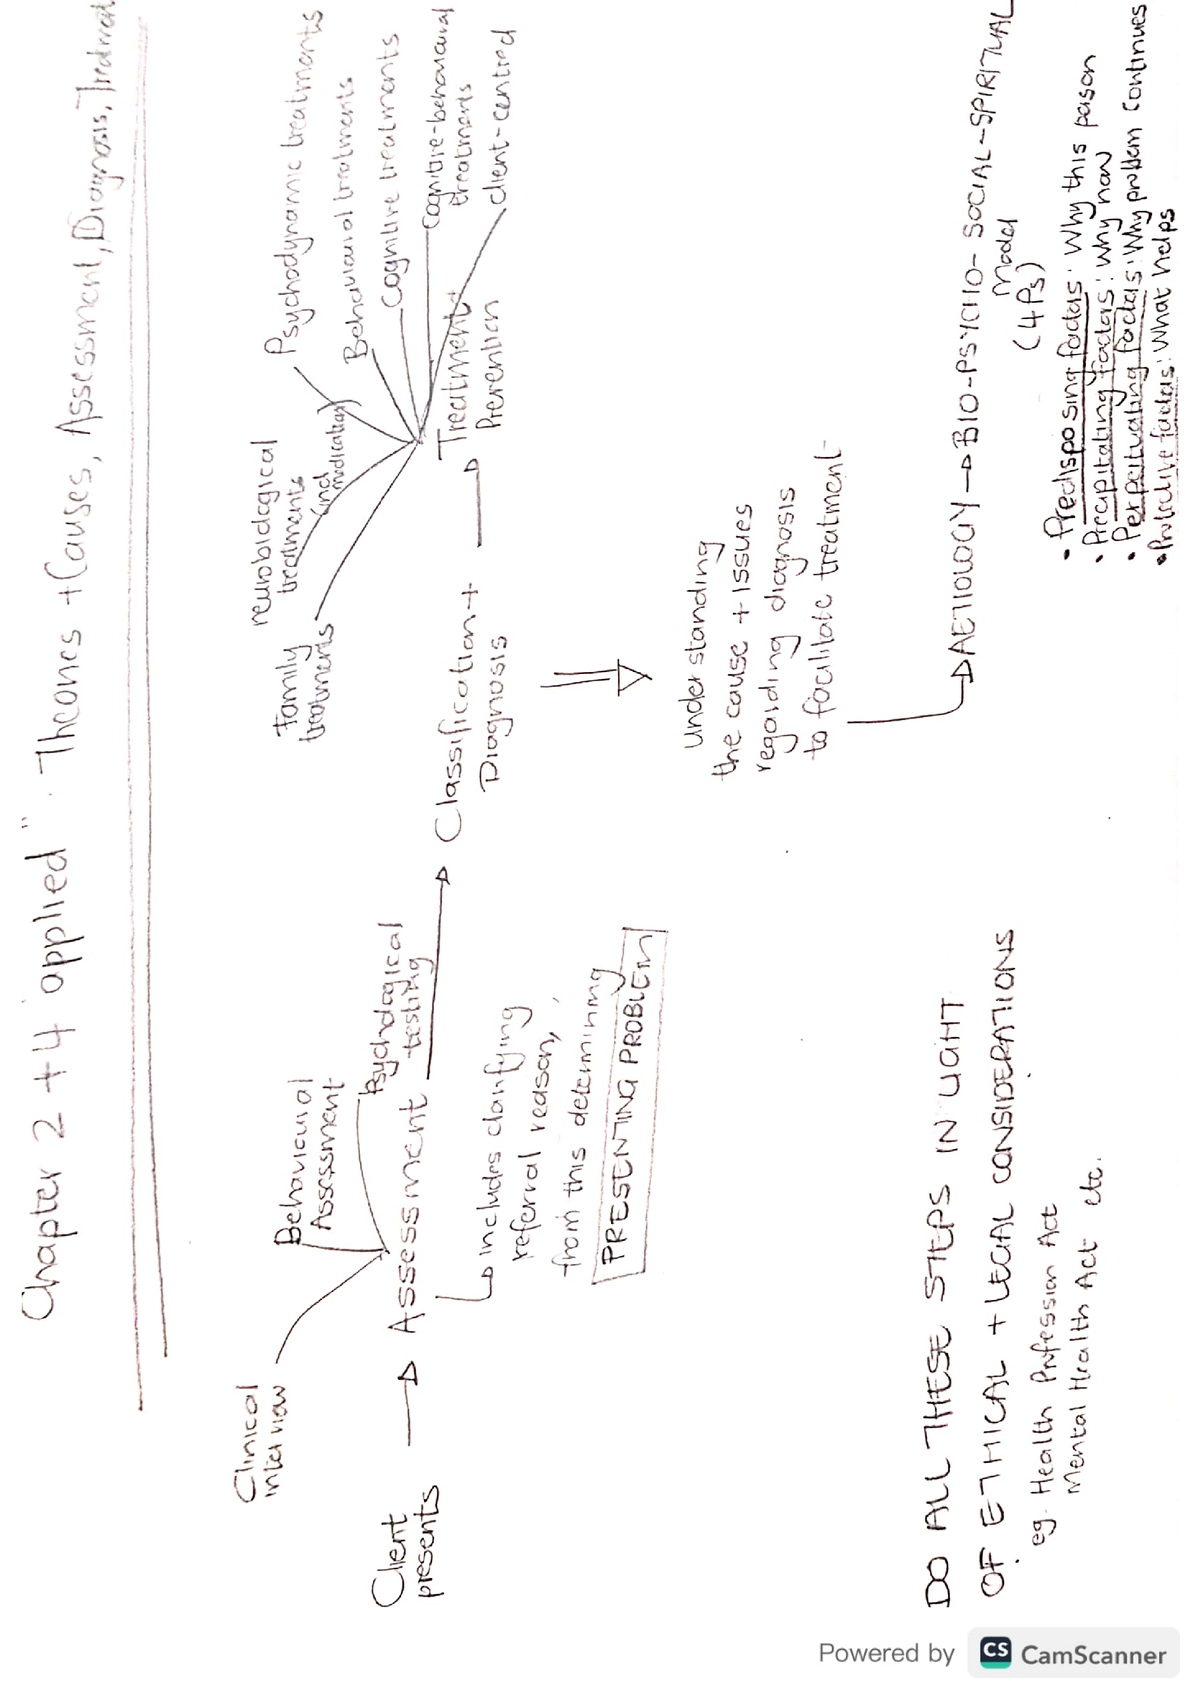 Chapter 2 + 4 "applied" : Theories + Causes, Assessment, Diagnosis, Treatment
Clinical
interview
Behavioural
Assessment
Psychological
testing
Client
presents
Assessment
includes clarifying
referral reason,
from this determining
PRESENTING PROBLEM
Classification +
Diagnosis
understanding
the cause + issues
regarding diagnosis
to facilitate treatment
Treatment +
Prevention
Family
treatments
neurobiological
treatments
(incl
medication)
Psychodynamic treatments
Behavioural treatments
Cognitive treatments
Cognitive-behavioural
treatments
client-centred
AETIOLOGY → BIO-PSYCHO-SOCIAL-SPIRITUAL
Model
(4Ps)
• Predisposing factors: Why this person
• Precipitating factors: Why now
• Perpetuating factors: Why problem continues
• Protective factors: What helps
DO ALL THESE STEPS IN LIGHT
OF ETHICAL + LEGAL CONSIDERATIONS
eg. Health Profession Act
Mental Health Act etc.
Powered by CS CamScanner